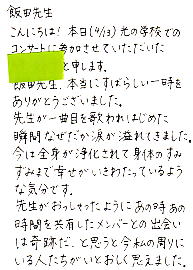 飯田先生
こんにちは！本日(4/13)光の学校での
コンサートに参加させていただいた
と申します。
飯田先生、本当にすばらしい一時を
ありがとうございました。
先生が一曲目を歌われはじめた
瞬間なぜだか涙が溢れてきました。
今は全身が浄化されて身体のすみ
ずみまで幸せがいきわたっているよう
な気分です。
先生がおっしゃたようにあの時あの
時間を共有したメンバーとの出会い
は奇跡だ、と思うと今私の周りに
いる人たちがいとおしく思えました。